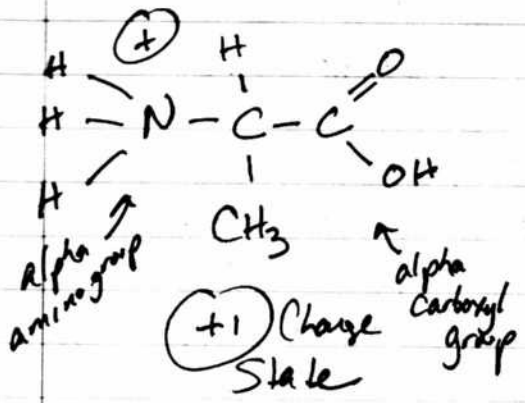 + H
H O
H - N - C - C
H OH
CH3
Alpha
amino group
alpha
carboxyl
group
+1 Charge
State